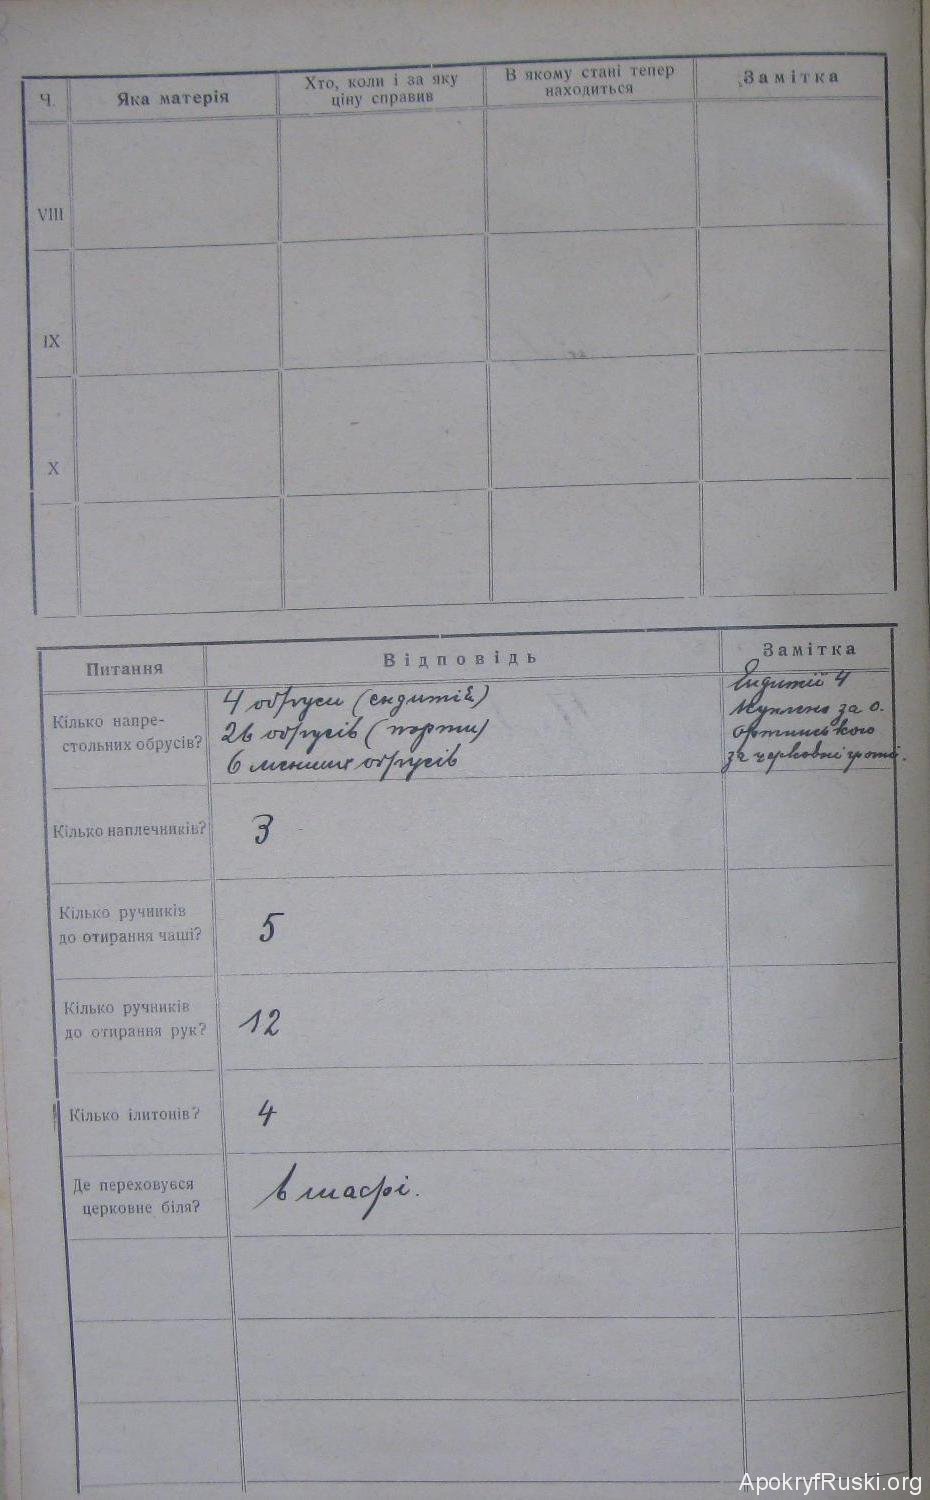 Ч.
Яка матерія
Хто, коли і за яку
ціну справив
В якому стані тепер
находиться
Замітка
VIII
IX
X
Питання
Відповідь
Замітка
Кілько напре-
стольних обрусів?
4 обруси (ендитії)
26 обрусів (порти)
6 менших обрусів
Ендитії 4
куплено за о.
за церковні гроші.
Кілько наплечників?
3
Кілько ручників
до отирання чаші?
5
Кілько ручників
до отирання рук?
12
Кілько ілитонів?
4
Де переховуєся
церковне біля?
в шафі.
ApokryfRuski.org